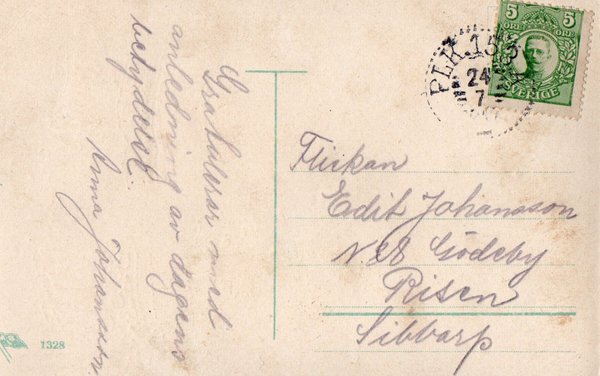 Gratulerar med
anledning av dagens
betydelse.
Anna Johansson.
5 5
ÖRE ÖRE
SVERIGE
PLK.153
24
7
Flickan
Edit Johansson
N:28 Gödeby
Risen
Sibbarp
1328